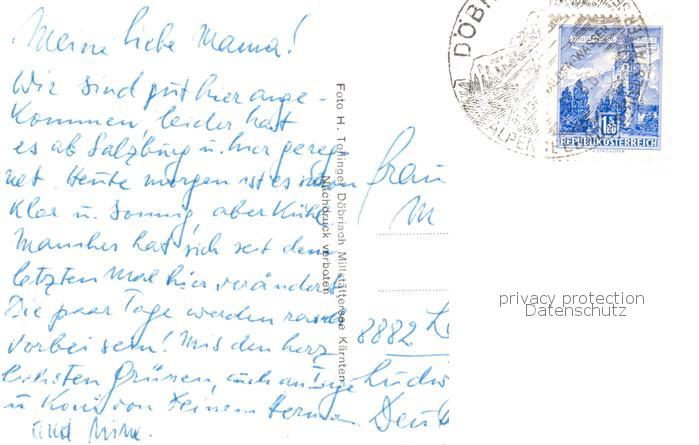 Meine liebe Mama!
Wir sind gut hier ange-
kommen, leider hat
es ab Salzburg u. hier gereg
net. Heute morgen ist es schon
klar u. sonnig, aber kühl.
Manches hat sich seit dem
letzten Mal hier verändert.
Die paar Tage werden rasch
vorbei sein! Mit den herz
lichsten Grüssen, auch an Inge
u. Koni von Deinem Herman
und
Foto H. Tollinger, Döbriach Millstättersee Kärnten
Nachdruck verboten
Frau
M
8882
Ludw
Deut
DÖBR
ALPEN
1.50
REPUBLIK ÖSTERREICH
privacy protection
Datenschutz